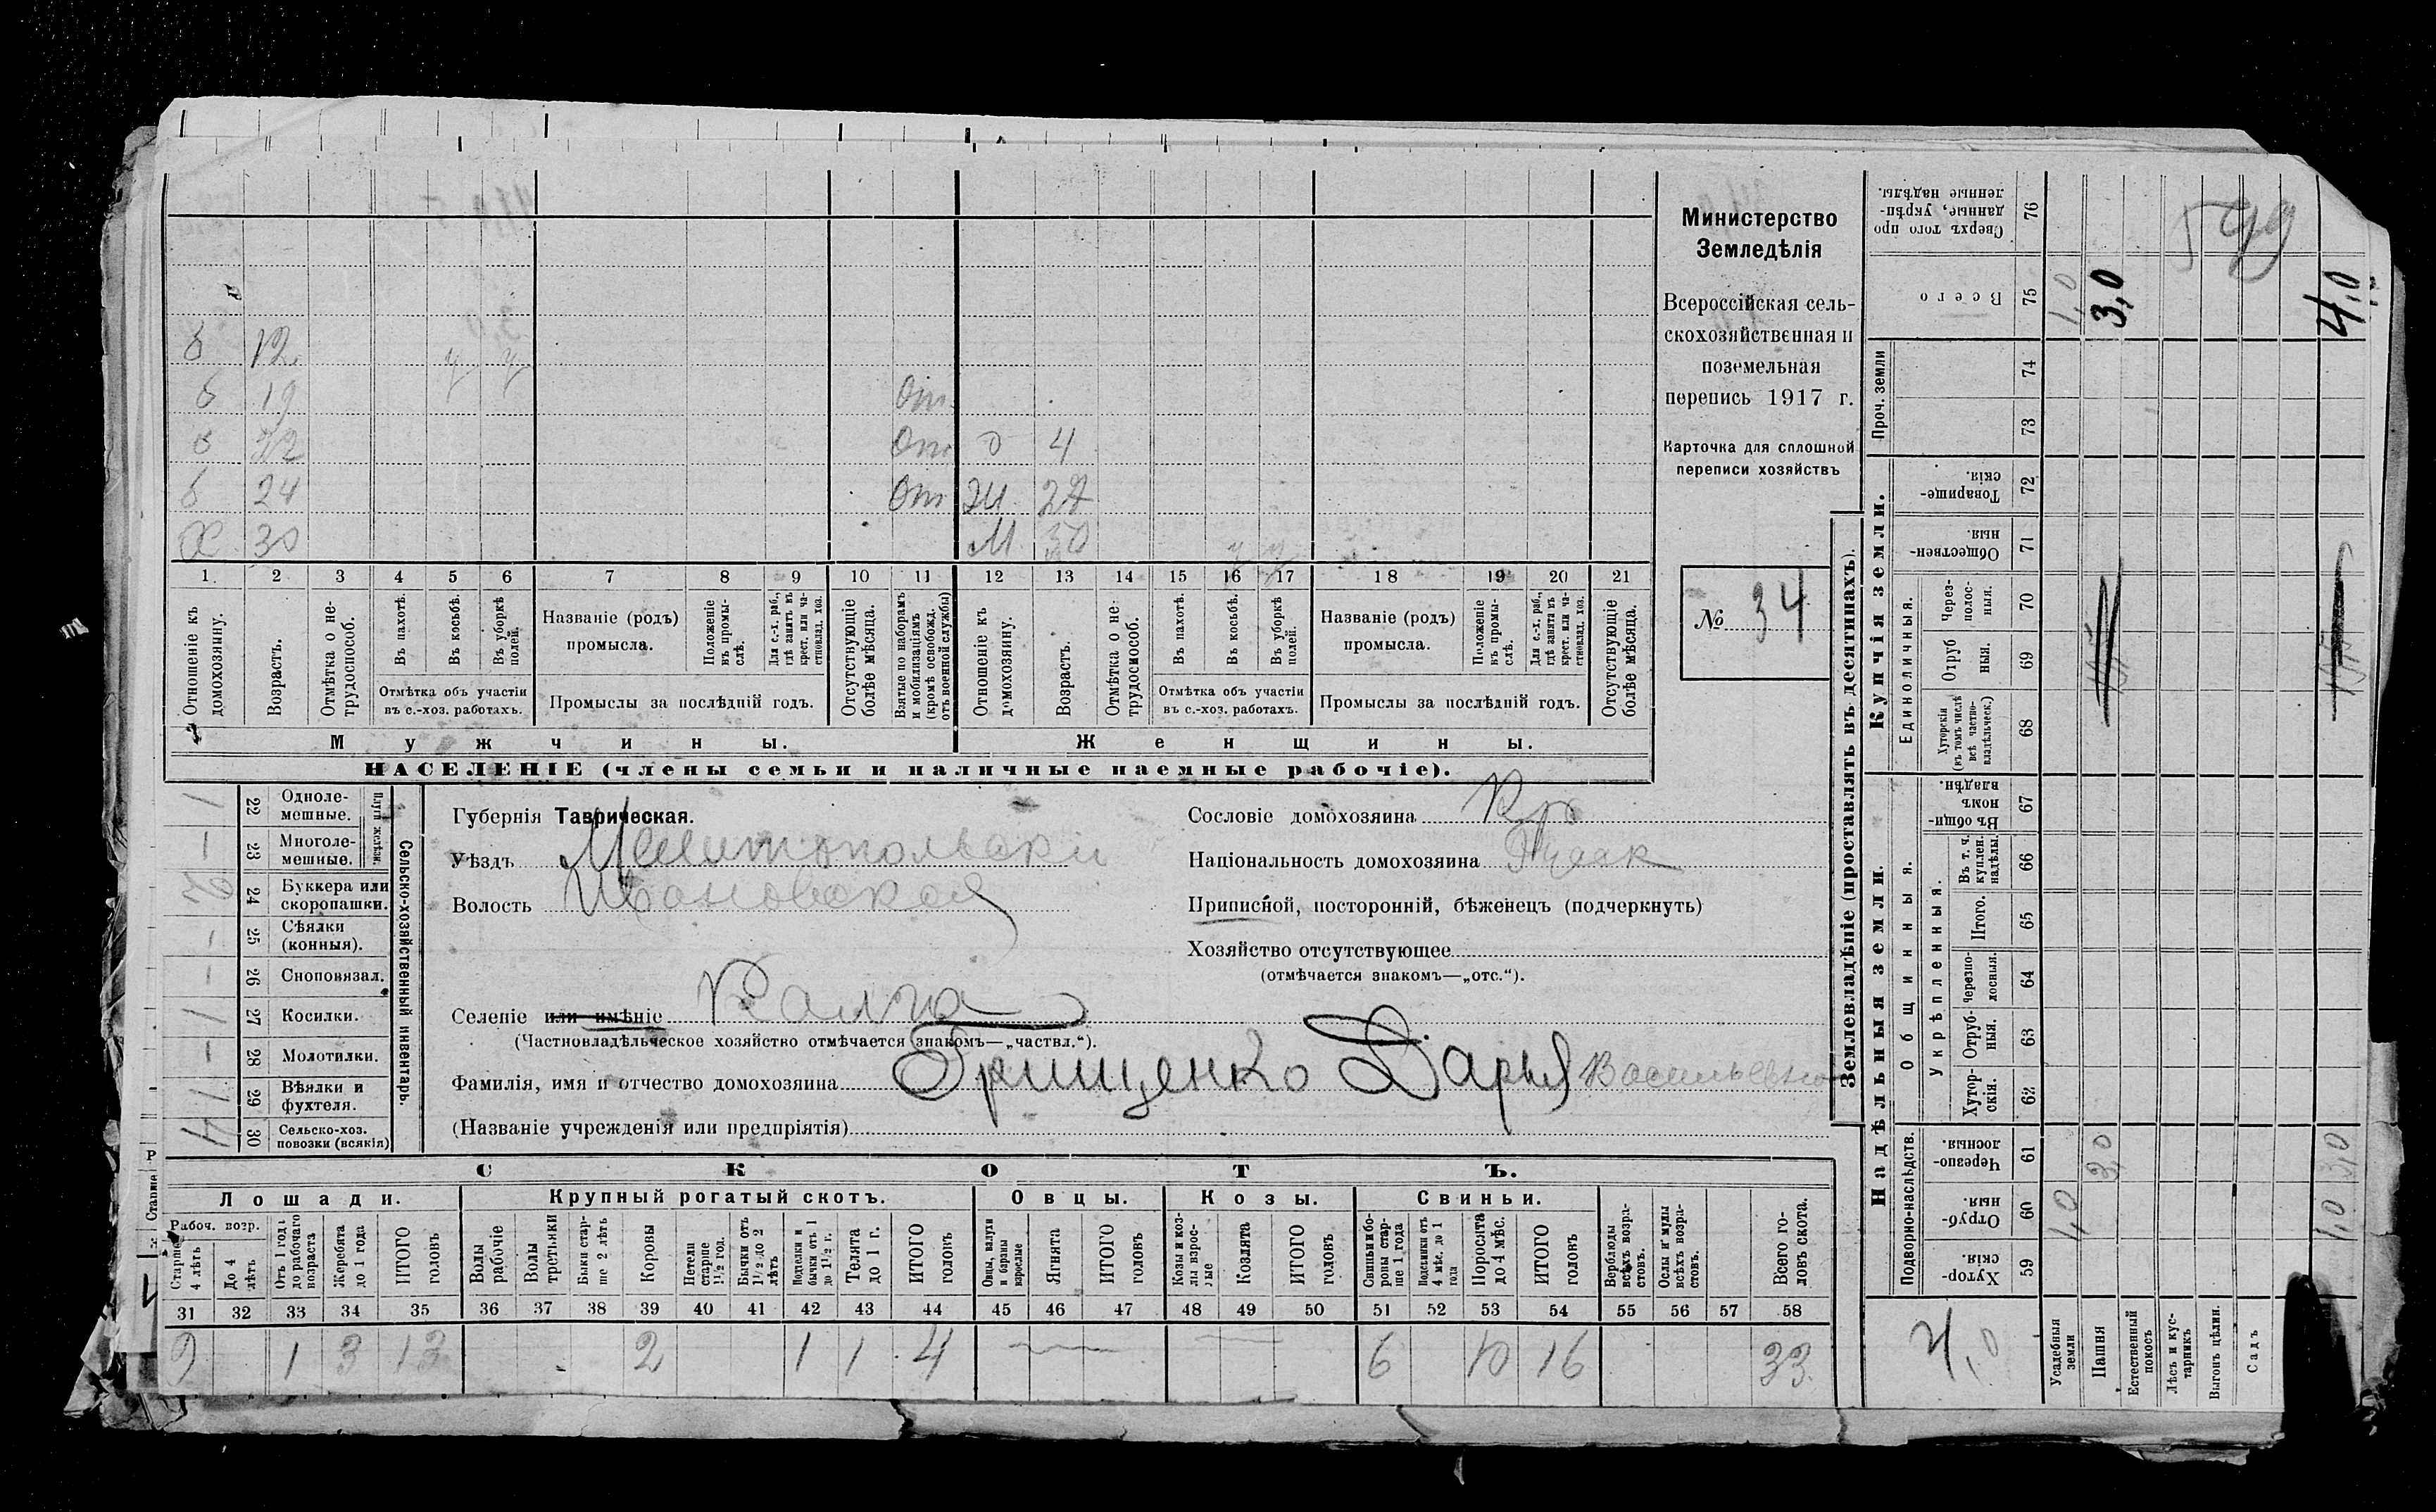 Министерство
Земледѣлія
Всероссійская сель-
скохозяйственная и
поземельная
перепись 1917 г.
Карточка для сплошной
переписи хозяйствъ
№ 34
б 12
б 19 От
б От 4
б 24 От 27
Х 30 М 30
1 2 3 4 5 6 7 8 9 10 11 12 13 14 15 16 17 18 19 20 21
Отношеніе къ домохозяину.
Возрастъ.
Отмѣтка о не-трудоспособ.
Въ пахотѣ.
Въ косьбѣ.
Въ уборкѣ полей.
Отмѣтка объ участіи
въ с.-хоз. работахъ.
Названіе (родъ)
промысла.
Положеніе въ промы-слѣ.
Для с.-х. раб., гдѣ занятъ въ крест. или ча-стновлад. хоз.
Промыслы за послѣдній годъ.
Отсутствующіе болѣе мѣсяца.
Взятые по наборамъ и мобилизаціямъ (кромѣ освобожд. отъ военной службы)
Отношеніе къ домохозяину.
Возрастъ.
Отмѣтка о не-трудоспособ.
Въ пахотѣ.
Въ косьбѣ.
Въ уборкѣ полей.
Отмѣтка объ участіи
въ с.-хоз. работахъ.
Названіе (родъ)
промысла.
Положеніе въ промы-слѣ.
Для с.-х. раб., гдѣ занята въ крест. или ча-стновлад. хоз.
Промыслы за послѣдній годъ.
Отсутствующіе болѣе мѣсяца.
Мужчины. Женщины.
НАСЕЛЕНІЕ (члены семьи и наличные наемные рабочіе).
Сельско-хозяйственный инвентарь.
Плуги желѣзн.
1 22 Одноле-мешные.
– 23 Многоле-мешные.
24 Буккера или скоропашки.
– 25 Сѣялки (конныя).
– 26 Сноповязал.
1 27 Косилки.
– 28 Молотилки.
1 29 Вѣялки и фухтеля.
4 30 Сельско-хоз. повозки (всякія)
Губернія Таврическая.
Уѣздъ Мелитопольски
Волость Ивановская
Селеніе или имѣніе Калга
(Частновладѣльческое хозяйство отмѣчается знакомъ—„частвл.“).
Фамилія, имя и отчество домохозяина Грищенко Дарья Васильевна
(Названіе учрежденія или предпріятія)
Сословіе домохозяина Кр
Національность домохозяина
Приписной, посторонній, бѣженецъ (подчеркнуть)
Хозяйство отсутствующее
(отмѣчается знакомъ—„отс.“).
СКОТЪ.
Лошади. Крупный рогатый скотъ. Овцы. Козы. Свиньи.
Рабоч. возр.
Старше 4 лѣтъ
До 4 лѣтъ
Отъ 1 года до рабочаго возраста
Жеребята до 1 года
ИТОГО головъ
Волы рабочіе
Волы третьяки
Быки стар-ше 2 лѣтъ
Коровы
Нетели старше 1½ год.
Бычки отъ 1½ до 2 лѣтъ
Подтелки и бычки отъ 1 до 1½ г.
Телята до 1 г.
ИТОГО головъ
Овцы, валухи и бараны взрослые
Ягнята
ИТОГО головъ
Козы и коз-лы взрос-лые
Козлята
ИТОГО головъ
Свиньи и бо-ровы стар-ше 1 года
Подсвинки отъ 4 мѣс. до 1 года
Поросята до 4 мѣс.
ИТОГО головъ
Верблюды всѣхъ возра-стовъ.
Ослы и мулы всѣхъ возра-стовъ.
Всего го-ловъ скота.
31 32 33 34 35 36 37 38 39 40 41 42 43 44 45 46 47 48 49 50 51 52 53 54 55 56 57 58
9 1 3 13 2 1 1 4 6 10 16 33
Землевладѣніе (проставлять въ десятинахъ).
Надѣльныя земли. Купчія земли. Проч. земли
Подворно-наслѣдств.
Общинныя.
Укрѣпленныя.
Единоличныя.
Хутор-скія. 59
Отруб-ныя. 60
Черезпо-лосныя. 61
Хутор-скія. 62
Отруб-ныя. 63
Черезпо-лосныя. 64
Итого. 65
Въ т. ч. куплен. надѣлы. 66
Въ общи-номъ владѣн. 67
Хуторскія (въ томъ числѣ всѣ частно-владѣльческ.) 68
Отруб ныя. 69
Через-полос-ныя. 70
Обществен-ныя. 71
Товарище-скія. 72
73
74
Всего 75
Сверхъ того про-данные, укрѣп-ленные надѣлы. 76
4,0
Усадебныя земли 1,0 1,0
Пашня 3,0 3,0
Естественный покосъ
Лѣсъ и кус-тарникъ
Выгонъ цѣлин.
Садъ
1,0 3,0 4,0